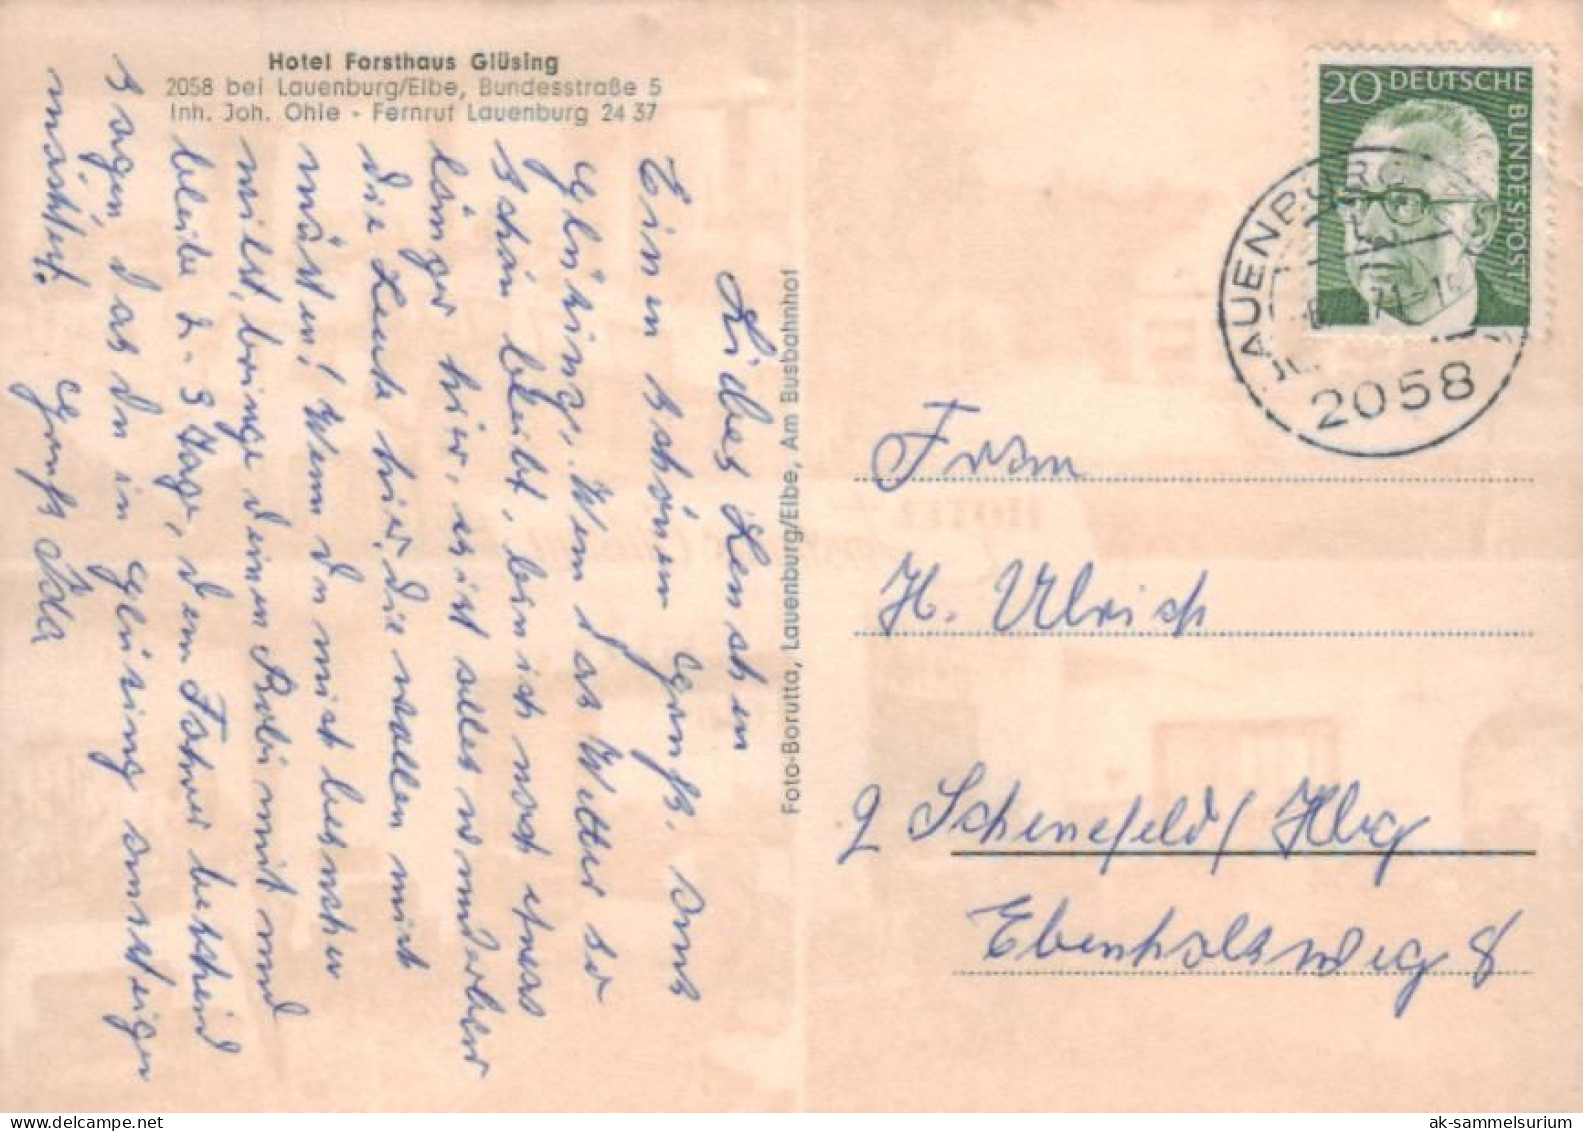 Hotel Forsthaus Glüsing
2058 bei Lauenburg/Elbe, Bundesstraße 5
Inh. Joh. Ohle - Fernruf Lauenburg 24 37
Liebes Lenchen
Ein schönen Gruß, aus
Glüsing. Wenn das Wetter so
schön bleibt, bin ich noch etwas
länger hier, es ist alles wunderbar
die Leute hier, die wollen mich
mästen! Wenn du mich besuchen
willst, bringe deinen Robi mit und
bleibe 2-3 Tage, dem Fahrer bescheid
sagen das du in Glüsing aussteigen
möchtest. Gruß Ida
Foto-Borutta, Lauenburg/Elbe, Am Busbahnhof
20 DEUTSCHE BUNDESPOST
LAUENBURG
71-19
2058
Frau
H. Ulrich
2 Schenefeld/Hbg
Ebenholzweg 8
ak-sammelsurium.com